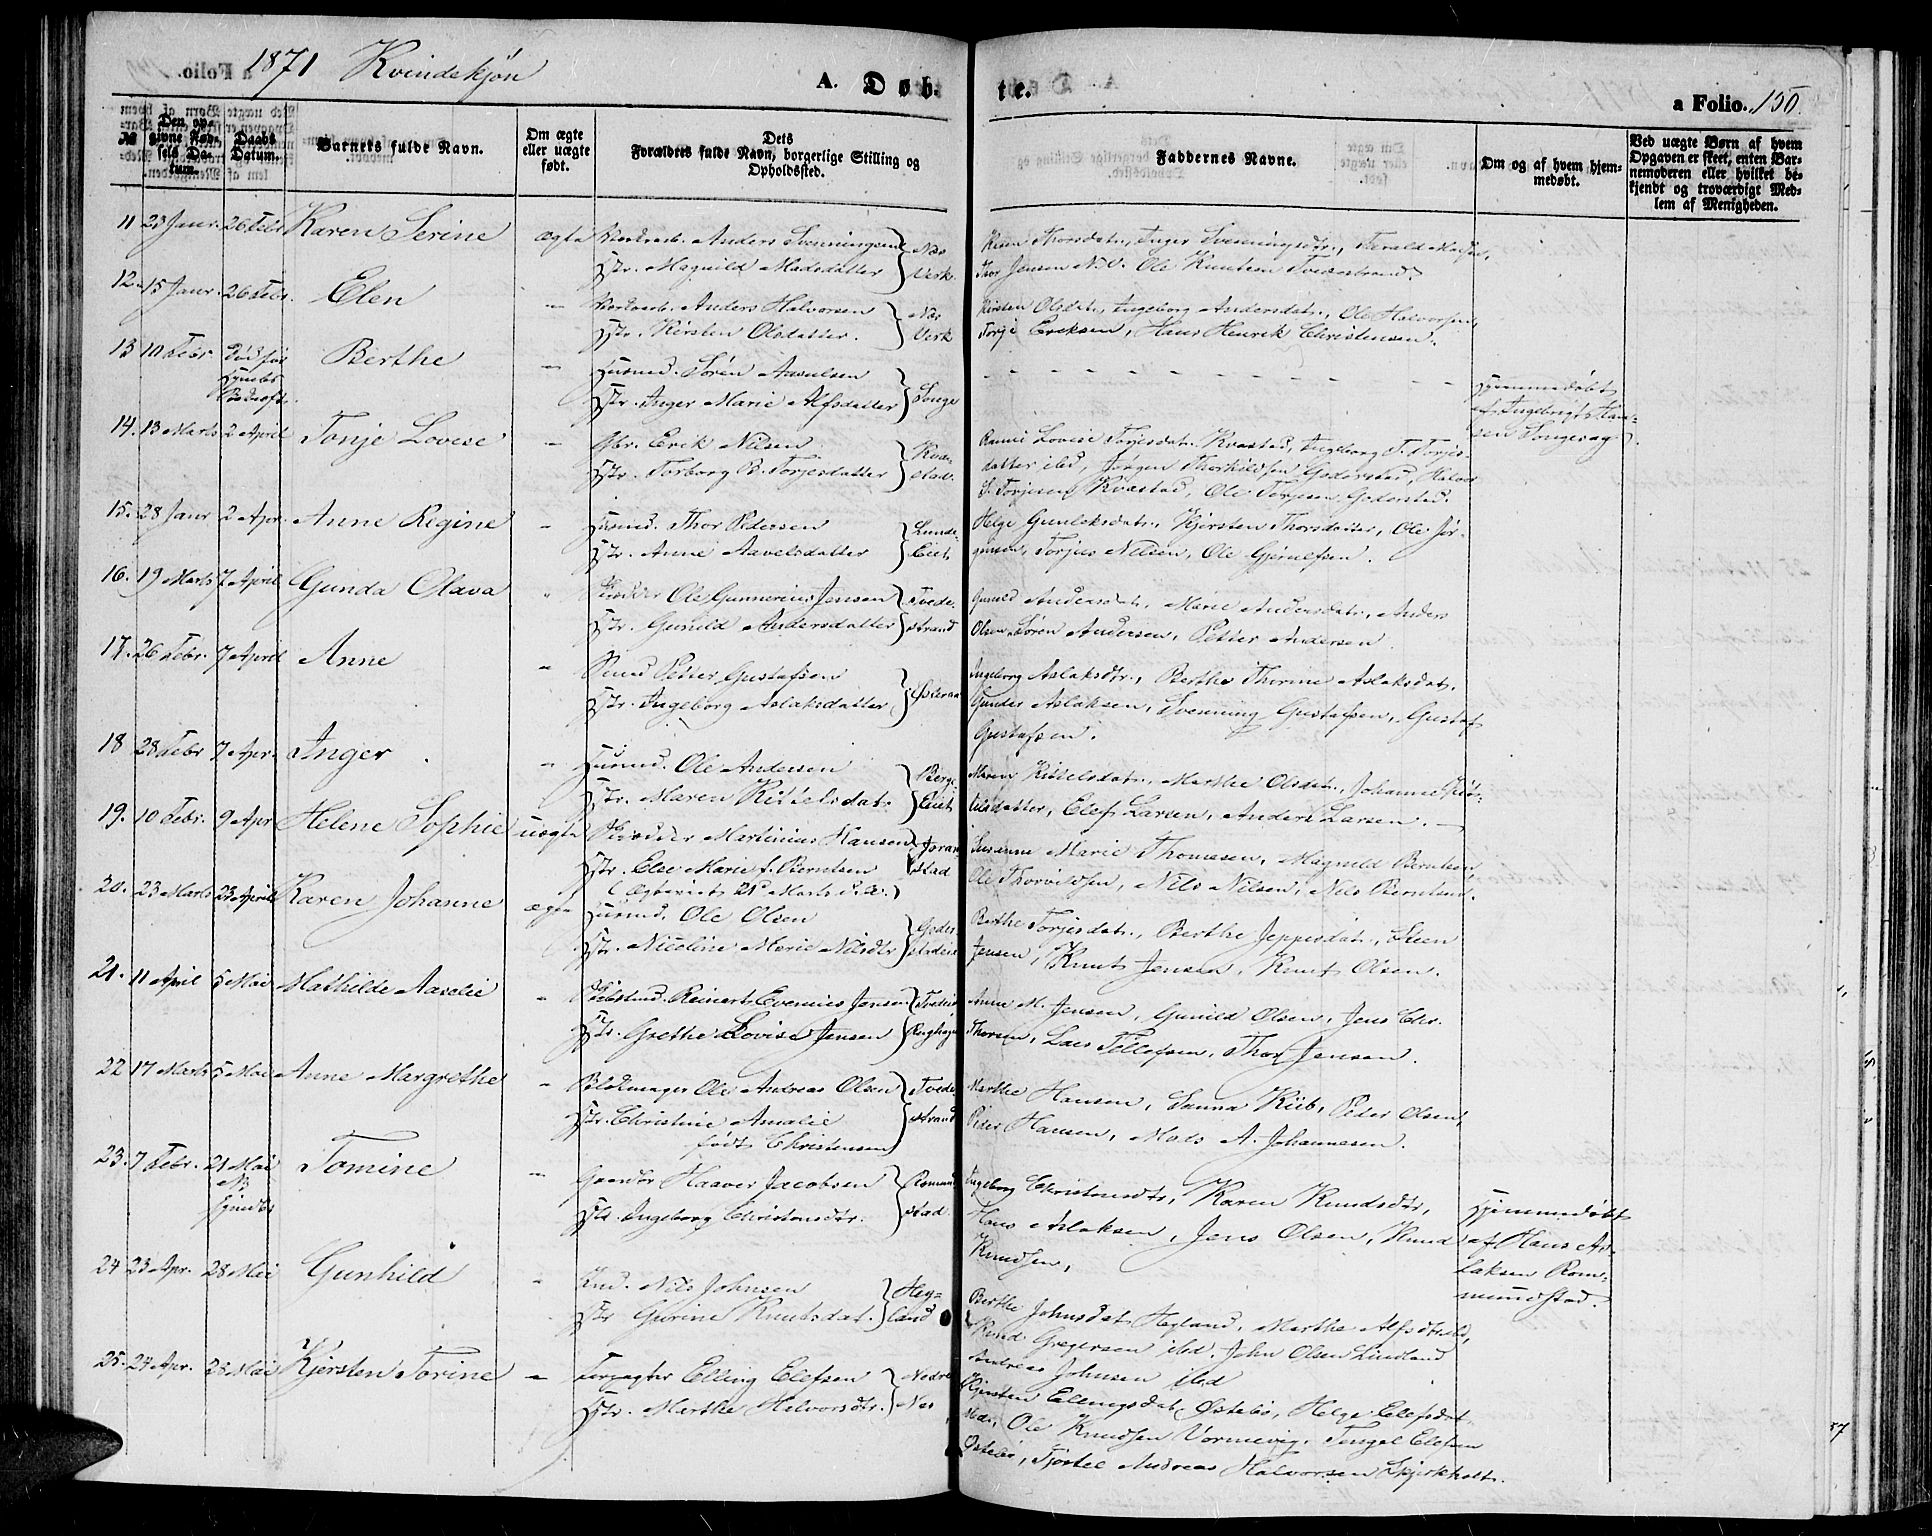 1871 Kvindekjøn
A. Døbte.
a Folio. 150.
№
Den opgivne Fødsels Datum.
Daabs Datum.
Barnets fulde Navn.
Om ægte eller uægte født.
Dets Forældres fulde Navn, borgerlige Stilling og Opholdssted.
Faddernes Navne.
Om og af hvem hjemmedøbt.
Ved uægte Børn af hvem Opgaven er skeet, enten Barnemoderen eller hvilket bekjendt og troværdigt Medlem af Menigheden.
11 23 Janr. 26 Febr Karen Serine ægte Anders Svenningsen Næs
Hstr. Magnild Madsdatter Verk.
Thorsdatr, Inger Svenningsdtr,
Thor Jensen N.V. Ole Knutsen Tvedestrand.
12. 15 Janr 26 Febr. Elen " Anders Halvorsen Næs
Hstr. Kirsten Olsdatter. Verk
Kirsten Olsdatr, Ingeborg Andersdatr., Ole Halvorsen,
Torje Ericksen, Hans Henrik Christensen.
13 10 Febr. Død før Berthe " Husmd. Søren Aanulsen
Hstr. Inger Marie Alfsdatter Songe
Hjemmedøbt
af Ingebrigt Han-
sen Songesag.
14. 13 Marts 2 April Tonje Lovise " Gbr. Erick Nilsen Kva-
Hstr. Torborg B. Torjesdatter stad.
Lovise Torjesdatr. Kvastad, Ingeborg T. Torjes-
datter ibd, Jørgen Thorkildsen Goderstad, Halvor
S. Torjesen Kvastad, Ole Torjesen Goderstad.
15. 28 Janr 2 Apr. Anne Regine " Husmd. Thor Pedersen Lunde-
Hstr. Anne Aavelsdatter Eiet
Helge Gunleksdatr., Kjersten Thorsdatter, Ole Jør-
gensen, Torjus Nilsen, Ole Gjerulfsen.
16. 19 Marts 7 April Gunda Olava " Ole Gunnerius Jensen Tvede-
Hstr. Gunild Andersdatter strand
Gunild Andersdatr, Marie Andersdatr., Anders
Olsen, Søren Andersen, Petter Andersen.
17. 26 Febr. 7 April Anne " Petter Gustafsen
Hstr. Ingeborg Aslaksdatter Østeraa
Ingeborg Aslaksdtr., Berthe Thorine Aslaksdatr.
Gunder Aslaksen, Svenning Gustafsen, Gustaf
Gustafsen.
18 28 Febr 7 Apr. Inger. " Husmd. Ole Andersen Berge
Hstr. Maren Kittelsdatr. Eiet
Maren Kittelsdatr., Marthe Olsdatr., Johanne Kit-
telsdatter, Elef Larsen, Anders Larsen.
19. 10 Febr. 9 Apr Helene Sophie uægte Martinius Hansen Joran-
Hstr. Else Marie f. Berntsen stad
Susanne Marie Thomesen, Magnild Berntsen,
Ole Thorvildsen, Nils Nilsen, Nils Berntsen.
20. 23 Marts 23 April Karen Johanne ægte Husmd. Ole Olsen Goder-
Hstr. Nicoline Marie Nilsdtr stadeie
Berthe Torjesdatr., Berthe Jeppesdatr., Steen
Jensen, Knut Jensen, Knut Olsen.
21. 11 April 5 Mai Mathilde Aaselie " Reinert Evenius Jensen
Hstr. Grethe Lovise Jensen
Anne M. Jensen, Gunild Olsen, Jens Chr.
Thorsen, Lars Tellefsen, Thor Jensen.
22 17 Marts 5 Mai Anne Margrethe " Blokmager Ole Andreas Olsen Tvede-
Hstr. Christine Amalie strand
født Christensen
Marthe Hansen, Sanna Kiib, Peder Olsen,
Peder Hansen, Mads A. Johannesen.
23. 7 Febr. 21 Mai Tomine " Haaver Jacobsen Romund-
Hstr. Ingeborg Christensdtr. stad.
Ingeborg Christensdtr, Karen Knudsdtr,
Hans Aslaksen, Jens Olsen, Knud
Knudsen,
Hjemmedøbt
af Hans As-
laksen Rom-
mundstad.
24 23 Apr. 28 Mai Gunhild " Nils Johnsen Heg-
Hstr Gurine Knutsdatr. land
Berthe Johnsdatr Hegland, Marthe Alfsdtr ibd,
Knud Gregersen ibd. John Olsen Lindland
Andreas Johnsen ibd
25. 24 Apr. 28 Mai Kjersten Torine " Forpagter Elling Elefsen Nedre
Hstr. Marthe Halvorsdtr. Næs
Kjersten Ellingsdatr Østebø, Helge Elefsdatr.
Næs, Ole Knudsen Vormevig. Tengel Elefsen
Østebø, Tjostel Andreas Halvorsen Skjerkholt.